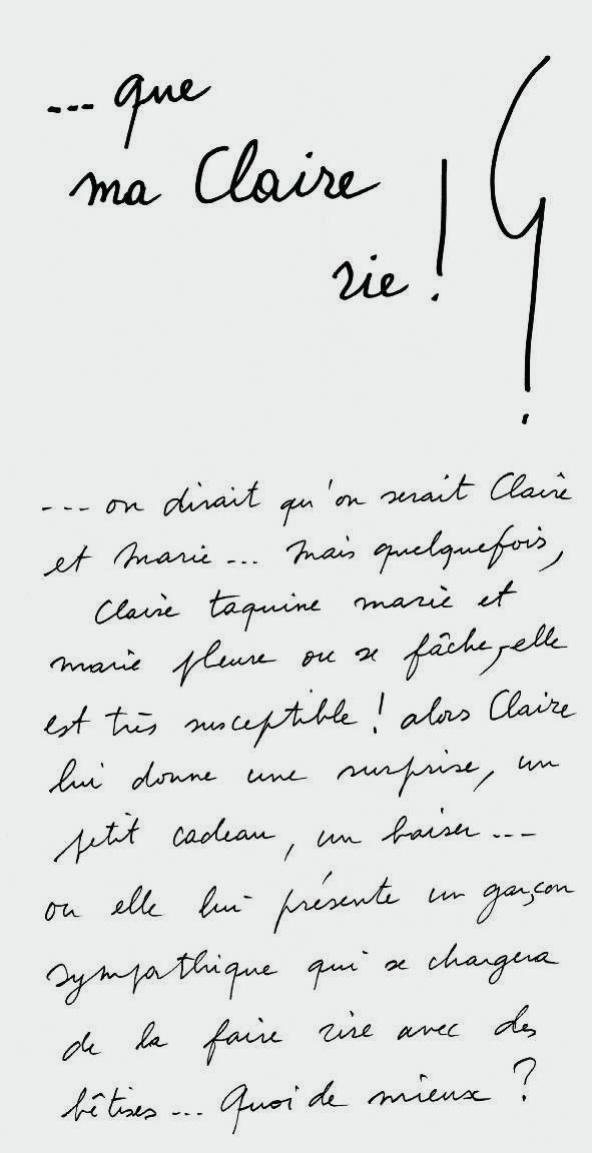 ... que
ma Claire
rie !
... on dirait qu'on serait Claire
et marie ... mais quelquefois,
Claire taquine marie et
marie pleure ou se fâche, elle
est très susceptible ! alors Claire
lui donne une surprise, un
petit cadeau, un baiser ...
ou elle lui présente un garçon
sympathique qui se chargera
de la faire rire avec des
bêtises ... Quoi de mieux ?